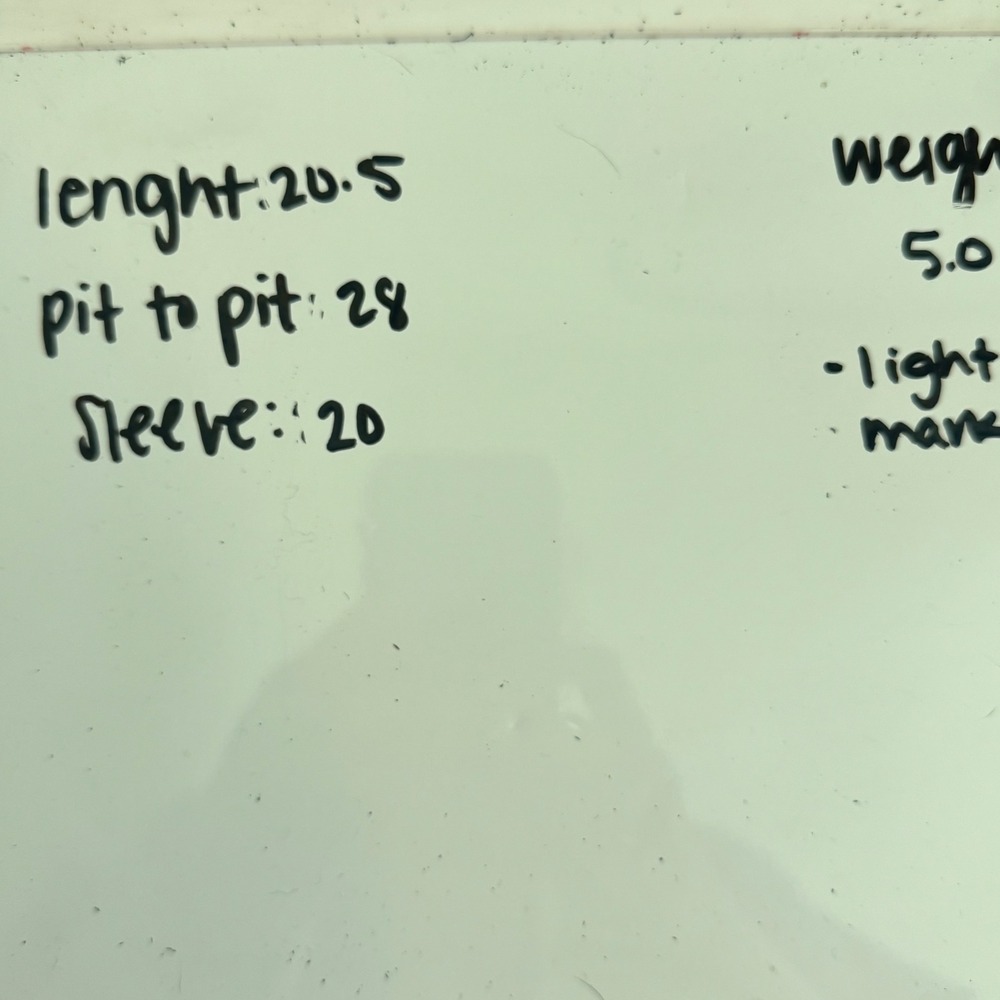 lenght: 20.5
pit to pit: 28
sleeve: 20
weigh
5.0
- light
mark